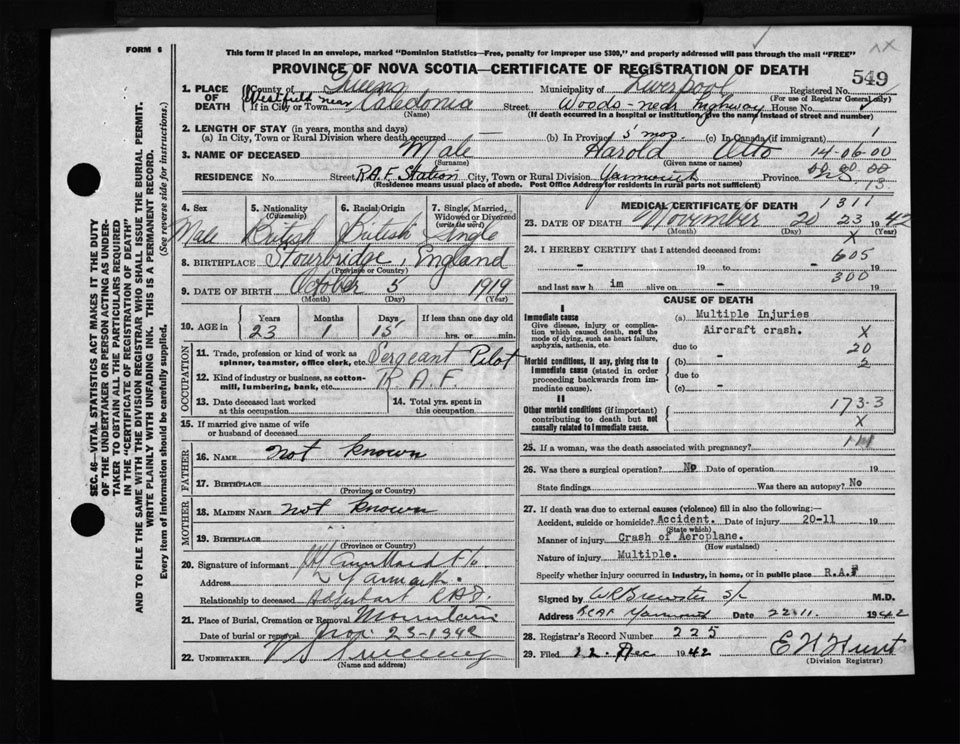 FORM 6
This form if placed in an envelope, marked "Dominion Statistics—Free, penalty for improper use $300," and properly addressed will pass through the mail "FREE"
PROVINCE OF NOVA SCOTIA—CERTIFICATE OF REGISTRATION OF DEATH 549
1. PLACE OF DEATH County of Queens Municipality of Liverpool Registered No.
(For use of Registrar General only)
If in City or Town Westfield near Caledonia Street Woods - near Highway House No.
(Name) (If death occurred in a hospital or institution, give the name instead of street and number)
2. LENGTH OF STAY (in years, months and days)
(a) In City, Town or Rural Division where death occurred — (b) In Province 5 mos. (c) In Canada (if immigrant) 1
3. NAME OF DECEASED Male Harold Otto 14-06-00
(Surname) (Given name or names)
RESIDENCE No. Street R.A.F. Station City, Town or Rural Division Yarmouth Province
(Residence means usual place of abode. Post Office Address for residents in rural parts not sufficient) 13
4. Sex Male
5. Nationality (Citizenship) British
6. Racial Origin British
7. Single, Married, Widowed or Divorced (write the word) Single
8. BIRTHPLACE Stourbridge, England
(Province or Country)
9. DATE OF BIRTH October 5 1919
(Month) (Day) (Year)
10. AGE in Years 23 Months 1 Days 15 If less than one day old hrs. or min.
OCCUPATION
11. Trade, profession or kind of work as spinner, teamster, office clerk, etc. Sergeant Pilot
12. Kind of industry or business, as cotton-mill, lumbering, bank, etc. R.A.F.
13. Date deceased last worked at this occupation
14. Total yrs. spent in this occupation
15. If married give name of wife or husband of deceased
FATHER
16. NAME not known
17. BIRTHPLACE
(Province or Country)
MOTHER
18. MAIDEN NAME not known
19. BIRTHPLACE
(Province or Country)
20. Signature of informant
Address Yarmouth.
Relationship to deceased
21. Place of Burial, Cremation or Removal Mountain
Date of burial or removal Nov. 23-1942
22. UNDERTAKER V S Sweeney
(Name and address)
MEDICAL CERTIFICATE OF DEATH 1311
23. DATE OF DEATH November 20 23 1942
(Month) (Day) (Year)
X
24. I HEREBY CERTIFY that I attended deceased from 605
- 19 to - 19
300
and last saw him alive on - 19
CAUSE OF DEATH
I
Immediate cause
Give disease, injury or complication which caused death, not the mode of dying, such as heart failure, asphyxia, asthenia, etc.
(a) Multiple Injuries
Aircraft crash. X
due to 20
Morbid conditions, if any, giving rise to immediate cause (stated in order proceeding backwards from immediate cause).
(b) - 2
due to
(c) -
II
Other morbid conditions (if important) contributing to death but not causally related to immediate cause.
173-3
X
25. If a woman, was the death associated with pregnancy? 111
26. Was there a surgical operation? No Date of operation 19
State findings Was there an autopsy? No
27. If death was due to external causes (violence) fill in also the following:—
Accident, suicide or homicide? Accident. Date of injury 20-11 19
(State which)
Manner of injury Crash of Aeroplane.
(How sustained)
Nature of injury Multiple.
Specify whether injury occurred in industry, in home, or in public place R.A.F
Signed by WR Brewster S/L M.D.
Address RCAF Yarmouth Date 22.11. 1942
28. Registrar's Record Number 225
29. Filed 12 Dec 1942 E H Hunt
(Division Registrar)
SEC. 46—VITAL STATISTICS ACT MAKES IT THE DUTY
OF THE UNDERTAKER OR PERSON ACTING AS UNDER-
TAKER TO OBTAIN ALL THE PARTICULARS REQUIRED
IN THE "CERTIFICATE OF REGISTRATION OF DEATH"
AND TO FILE THE SAME WITH THE DIVISION REGISTRAR WHO SHALL ISSUE THE BURIAL PERMIT.
WRITE PLAINLY WITH UNFADING INK. THIS IS A PERMANENT RECORD.
Every item of information should be carefully supplied. (See reverse side for instructions.)